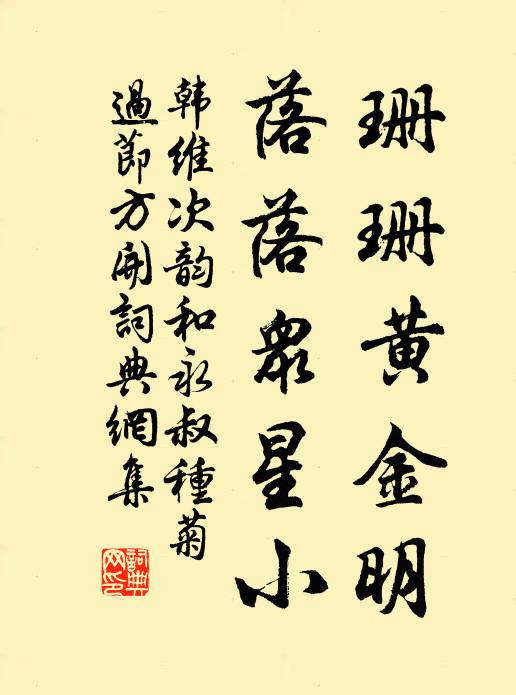 珊珊黃金明
落落衆星小
韩維次韵和永叔種菊
過節方開詞典網集
詞典
网印